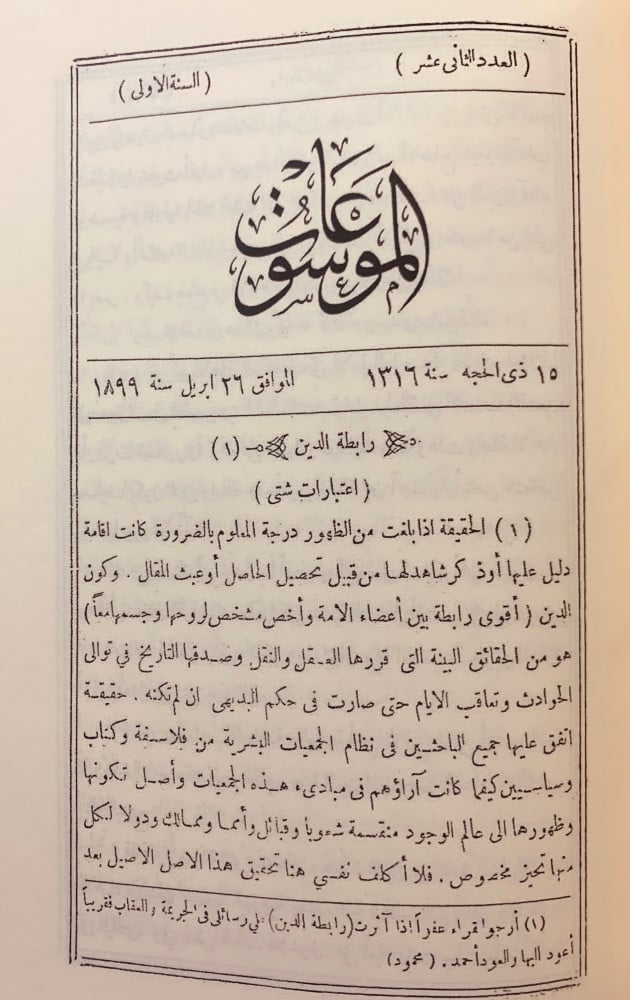 ( العدد الثانى عشر )
( السنة الاولى )
الموسوعات
١٥ ذى الحجه سنة ١٣١٦ الموافق ٢٦ ابريل سنة ١٨٩٩
رابطة الدين – (١)
( اعتبارات شتى )
( ١ ) الحقيقة اذا بلغت من الظهور درجة المعلوم بالضرورة كانت اقامة
دليل عليها أو ذكر شاهد لها من قبيل تحصيل الحاصل أو عبث المقال . وكون
الدين ( أقوى رابطة بين أعضاء الامة وأخص مشخص لروحها وجسمها معاً )
هو من الحقائق البينة التى قررها العقل والنقل وصدقها التاريخ في توالى
الحوادث وتعاقب الايام حتى صارت فى حكم البديهى ان لم تكنه . حقيقة
اتفق عليها جميع الباحثين فى نظام الجمعيات البشرية من فلاسفة وكتاب
وسياسيين كيفما كانت آراؤهم فى مبادىء هذه الجمعيات وأصل تكونها
وظهورها الى عالم الوجود منقسمة شعوبا وقبائل وأمما وممالك ودولا لكل
منها تحيز مخصوص . فلا أكلف نفسي هنا تحقيق هذا الاصل الاصيل بعد
(١) أرجو القراء عفراً إذا آثرت (رابطة الدين) على رسائلى فى الجريمة والعقاب فقريباً
أعود اليها والعود أحمد . ( محمود )